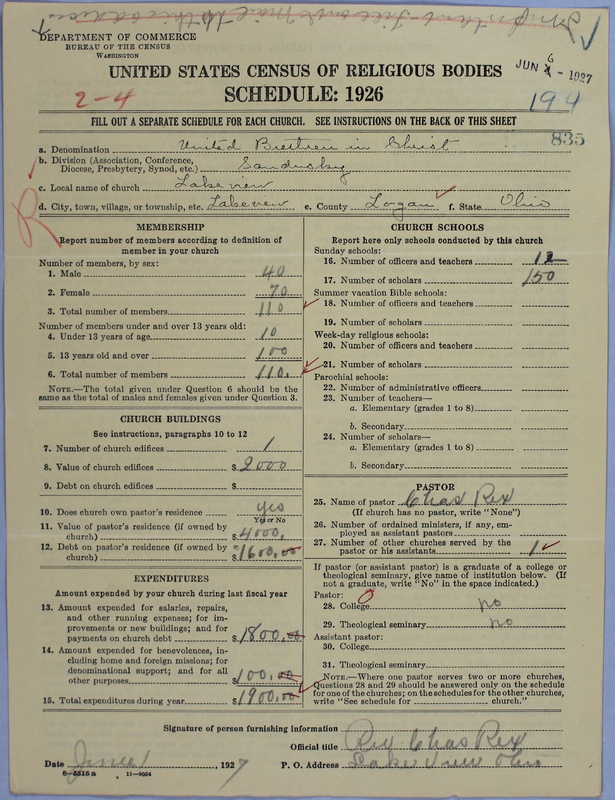 DEPARTMENT OF COMMERCE
BUREAU OF THE CENSUS
WASHINGTON
UNITED STATES CENSUS OF RELIGIOUS BODIES
SCHEDULE: 1926
JUN 6 - 1927
2-4
194
FILL OUT A SEPARATE SCHEDULE FOR EACH CHURCH. SEE INSTRUCTIONS ON THE BACK OF THIS SHEET
835
a. Denomination United Brethren in Christ
b. Division (Association, Conference, Diocese, Presbytery, Synod, etc.) Sandusky
c. Local name of church Lakeview
d. City, town, village, or township, etc. Lakeview e. County Logan f. State Ohio
R
MEMBERSHIP
Report number of members according to definition of member in your church
Number of members, by sex:
1. Male 40
2. Female 70
3. Total number of members 110
Number of members under and over 13 years old:
4. Under 13 years of age 10
5. 13 years old and over 100
6. Total number of members 110.
NOTE.—The total given under Question 6 should be the same as the total of males and females given under Question 3.
CHURCH BUILDINGS
See instructions, paragraphs 10 to 12
7. Number of church edifices 1
8. Value of church edifices $ 2000
9. Debt on church edifices $
10. Does church own pastor's residence yes
Yes or No
11. Value of pastor's residence (if owned by church) $ 4000.
12. Debt on pastor's residence (if owned by church) $ 1600.00
EXPENDITURES
Amount expended by your church during last fiscal year
13. Amount expended for salaries, repairs, and other running expenses; for improvements or new buildings; and for payments on church debt $ 1800.00
14. Amount expended for benevolences, including home and foreign missions; for denominational support; and for all other purposes $ 100.00
15. Total expenditures during year $ 1900.00
CHURCH SCHOOLS
Report here only schools conducted by this church
Sunday schools:
16. Number of officers and teachers 12
17. Number of scholars 150
Summer vacation Bible schools:
18. Number of officers and teachers
19. Number of scholars
Week-day religious schools:
20. Number of officers and teachers
21. Number of scholars
Parochial schools:
22. Number of administrative officers
23. Number of teachers—
a. Elementary (grades 1 to 8)
b. Secondary
24. Number of scholars—
a. Elementary (grades 1 to 8)
b. Secondary
PASTOR
25. Name of pastor Chas Rex
(If church has no pastor, write "None")
26. Number of ordained ministers, if any, employed as assistant pastors
27. Number of other churches served by the pastor or his assistants 1
If pastor (or assistant pastor) is a graduate of a college or theological seminary, give name of institution below. (If not a graduate, write "No" in the space indicated.)
Pastor: O
28. College no
29. Theological seminary no
Assistant pastor:
30. College
31. Theological seminary
NOTE.—Where one pastor serves two or more churches, Questions 28 and 29 should be answered only on the schedule for one of the churches; on the schedules for the other churches, write "See schedule for ............ church."
Signature of person furnishing information
Official title Rev Chas Rex
Date June 1, 1927 P. O. Address Lake View Ohio
8-5518a 11-9054